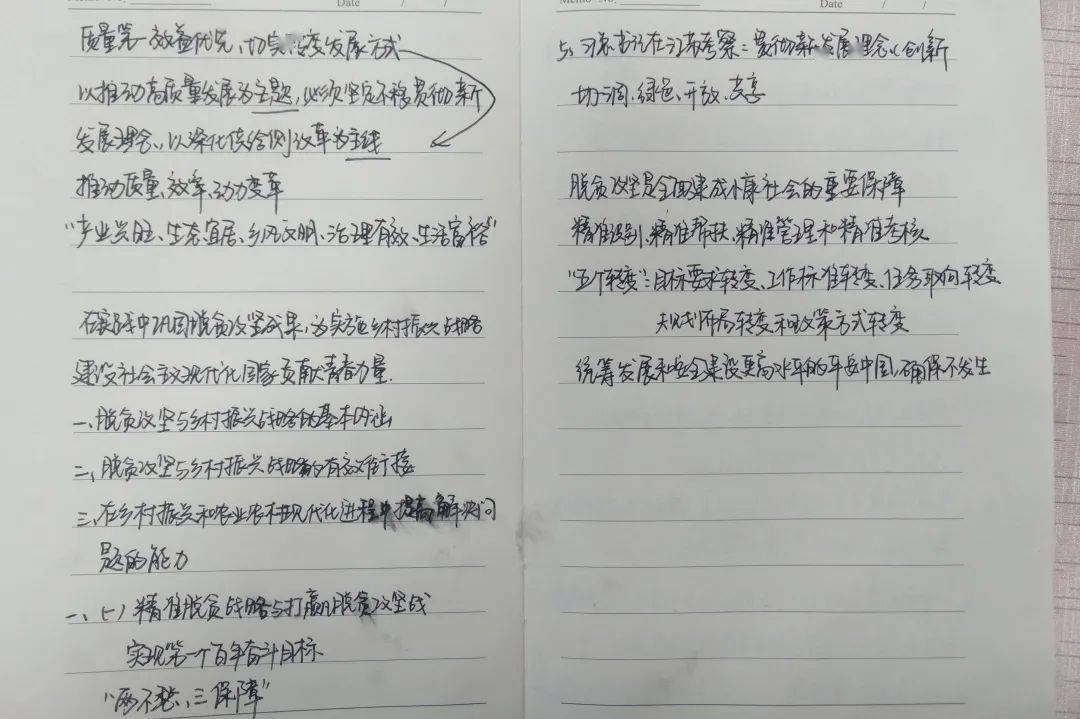 Memo No.
Date / /
质量第一效益优先,切实转变发展方式
以推动高质量发展为主题,必须坚定不移贯彻新
发展理念,以深化供给侧改革为主线
推动质量、效率、动力变革
“产业兴旺、生态宜居、乡风文明、治理有效、生活富裕”
在实践中巩固脱贫攻坚成果,为实施乡村振兴战略
建设社会主义现代化国家贡献青春力量.
一、脱贫攻坚与乡村振兴战略的基本内涵
二、脱贫攻坚与乡村振兴战略的有效衔接
三、在乡村振兴和农业农村现代化进程中提高解决问
题的能力
一、(一)精准脱贫战略与打赢脱贫攻坚战
实现第一个百年奋斗目标
“两不愁、三保障”
Memo No.
Date / /
5、习总书记在江苏考察:贯彻新发展理念(创新
协调、绿色、开放、共享
脱贫攻坚是全面建成小康社会的重要保障
精准识别、精准帮扶、精准管理和精准考核
“五个转变”:目标要求转变、工作标准转变、任务取向转变
规划布局转变和政策方式转变
统筹发展和安全建设更高水平的平安中国,确保不发生